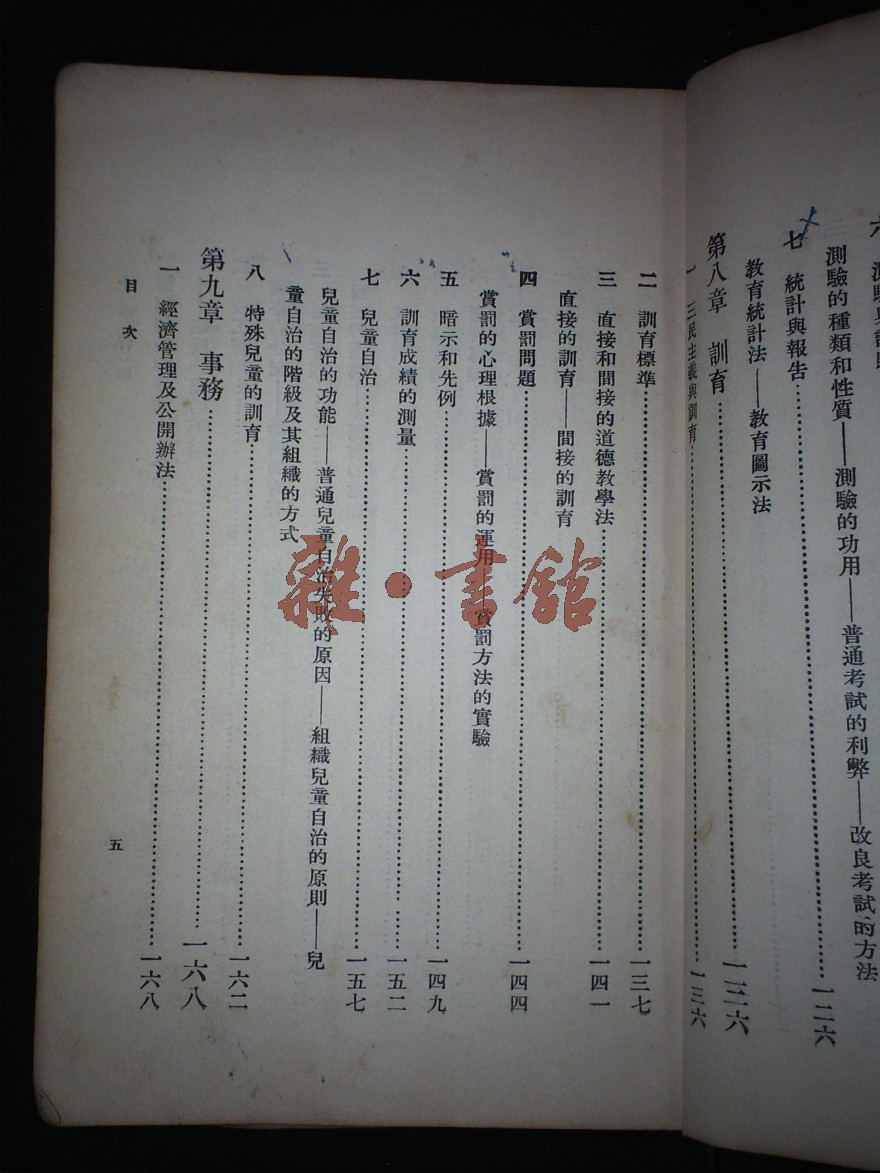 測驗的種類和性質——測驗的功用——普通考試的利弊——改良考試的方法
七 統計與報告……一二六
教育統計法——教育圖示法
第八章 訓育……一三六
一 三民主義與訓育……一三六
二 訓育標準……一三七
三 直接和間接的道德教學法……一四一
直接的訓育——間接的訓育
四 賞罰問題……一四四
賞罰的心理根據——賞罰的運用——賞罰方法的實驗
五 暗示和先例……一四九
六 訓育成績的測量……一五二
七 兒童自治……一五七
兒童自治的功能——普通兒童自治失敗的原因——組織兒童自治的原則——兒
童自治的階級及其組織的方式
八 特殊兒童的訓育……一六二
第九章 事務……一六八
一 經濟管理及公開辦法……一六八
目次
五
雜·書館